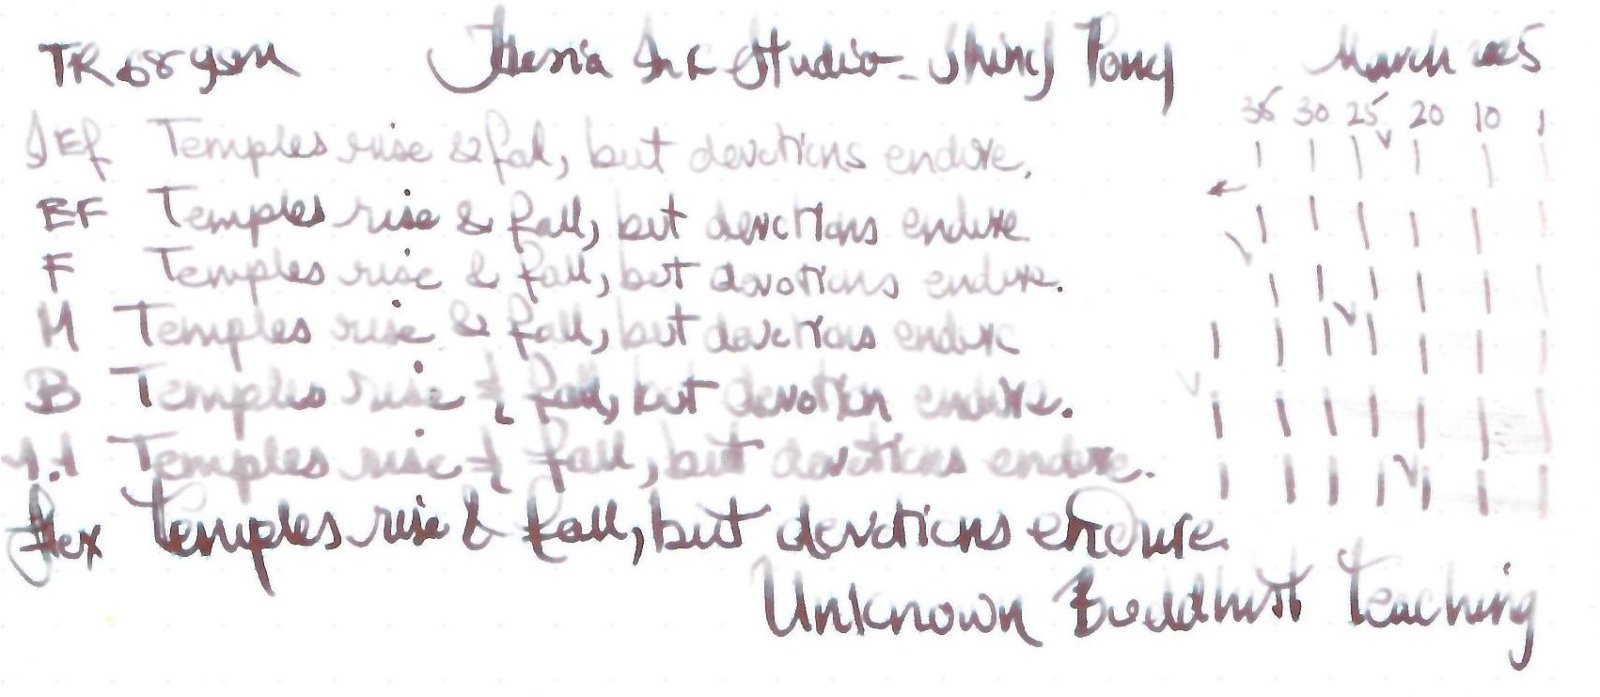 TR 68 gsm Jhesia Ink Studio - Jhing Pong March 2025
35 30 25 20 10 1
JEF Temples rise & fal, but devotions endure.
EF Temples rise & fall, but devotions endure
F Temples rise & fall, but devotions endure.
M Temples rise & fall, but devotions endure
B Temples rise & fall, but devotion endure.
1.1 Temples rise & fall, but devotions endure.
flex Temples rise & fall, but devotions endure.
Unknown Buddhist Teaching